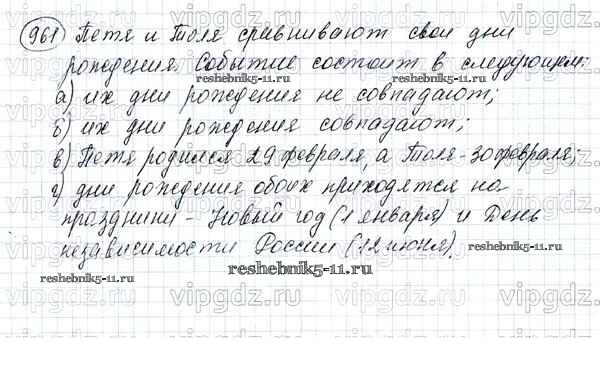 961 Петя и Толя сравнивают свои дни
рождения. Событие состоит в следующем:
reshebnik5-11.ru
reshebnik5-11.ru
а) их дни рождения не совпадают;
б) их дни рождения совпадают;
в) Петя родился 29 февраля, а Толя - 30 февраля;
г) дни рождения обоих приходятся на
праздники - Новый год (1 января) и День
независимости России (12 июня).
reshebnik5-11.ru
reshebnik5-11.ru
reshebnik5-11.ru
vipgdz.ru